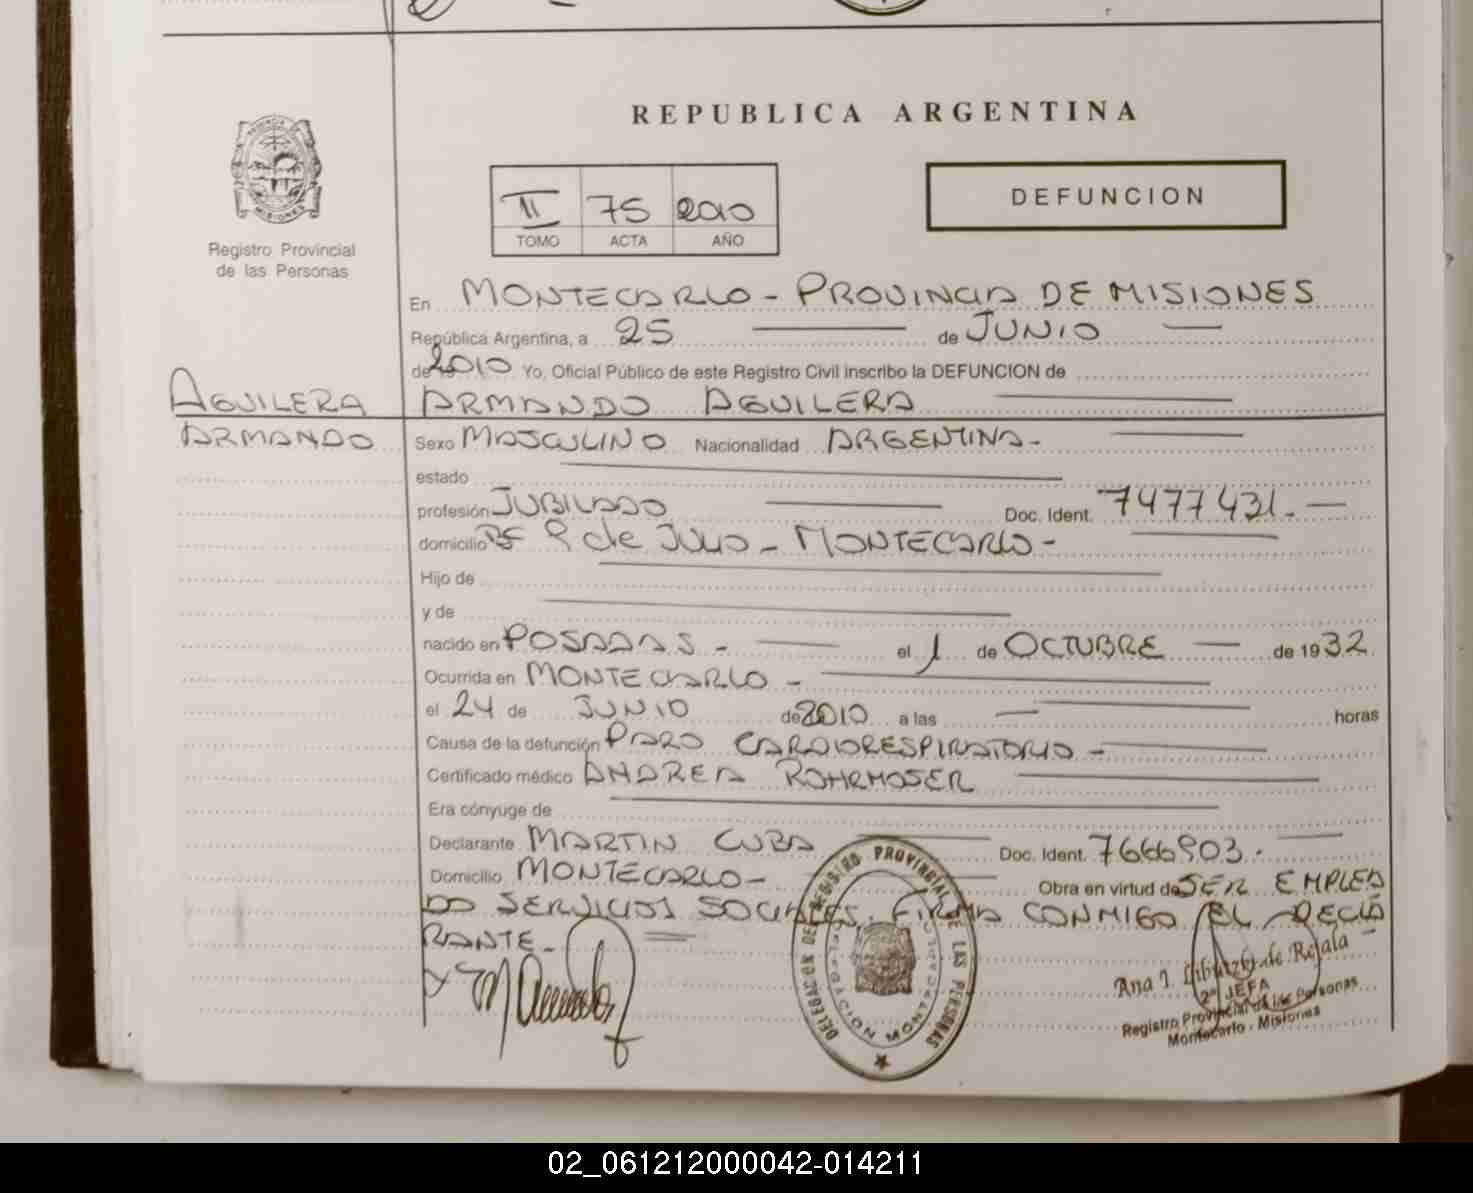 REPUBLICA ARGENTINA
II 75 2010
TOMO ACTA AÑO
DEFUNCION
PROVINCIA
MISIONES
Registro Provincial
de las Personas
En MONTECARLO - PROVINCIA DE MISIONES
República Argentina, a 25 de JUNIO
de 2010 Yo, Oficial Público de este Registro Civil inscribo la DEFUNCION de
AGUILERA
ARMANDO
ARMANDO AGUILERA
Sexo MASCULINO Nacionalidad ARGENTINA-
estado
profesión JUBILADO Doc. Ident. 7477431.-
domicilio Bº 9 de JULIO - MONTECARLO -
Hijo de
y de
nacido en POSADAS - el 1 de OCTUBRE de 1932
Ocurrida en MONTECARLO -
el 24 de JUNIO de 2010 a las — horas
Causa de la defunción PARO CARDIORESPIRATORIO -
Certificado médico ANDREA ROHRMOSER
Era cónyuge de
Declarante MARTIN CUBA Doc. Ident. 7666903.
Domicilio MONTECARLO - Obra en virtud de SER EMPLEA
DO SERVICIOS SOCIALES. FIRMA CONMIGO EL DECLA
RANTE.-
DELEGACION DE REGISTRO PROVINCIAL DE LAS PERSONAS
Ana I. de Rejala
2ª JEFA
Registro Provincial de las Personas
Montecarlo - Misiones
02_061212000042-014211